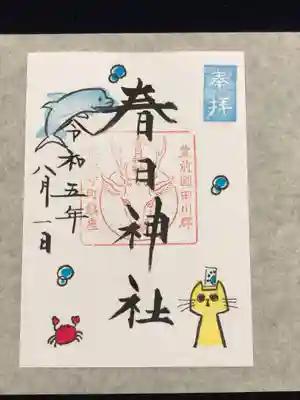 奉拝
春日神社
豊前國田川郡
令和五年
八月一日